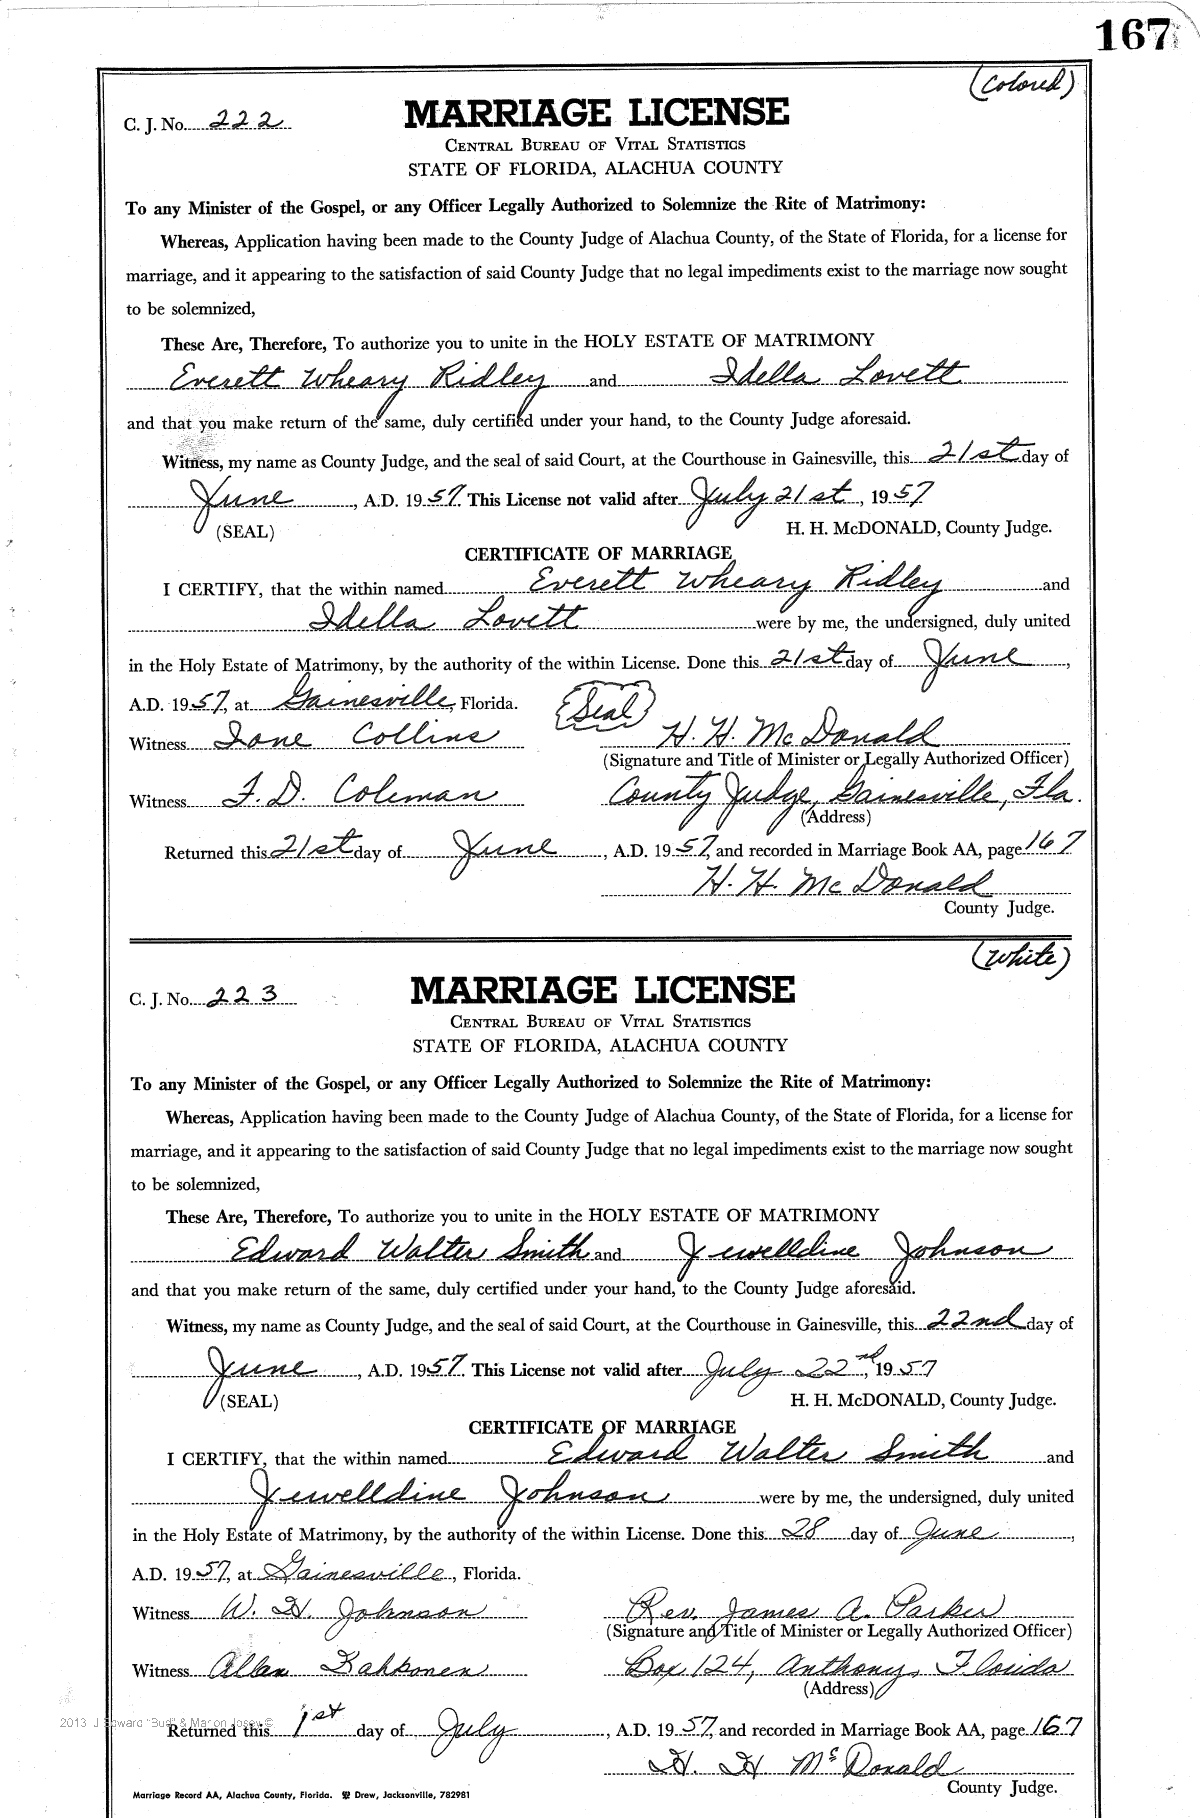 167
(Colored)
C. J. No. 222 MARRIAGE LICENSE
CENTRAL BUREAU OF VITAL STATISTICS
STATE OF FLORIDA, ALACHUA COUNTY
To any Minister of the Gospel, or any Officer Legally Authorized to Solemnize the Rite of Matrimony:
Whereas, Application having been made to the County Judge of Alachua County, of the State of Florida, for a license for
marriage, and it appearing to the satisfaction of said County Judge that no legal impediments exist to the marriage now sought
to be solemnized,
These Are, Therefore, To authorize you to unite in the HOLY ESTATE OF MATRIMONY
Everett Wheary Ridley and Idella Lovett
and that you make return of the same, duly certified under your hand, to the County Judge aforesaid.
Witness, my name as County Judge, and the seal of said Court, at the Courthouse in Gainesville, this 21st day of
June, A.D. 1957. This License not valid after July 21st, 1957
(SEAL) H. H. McDONALD, County Judge.
CERTIFICATE OF MARRIAGE
I CERTIFY, that the within named Everett Wheary Ridley and
Idella Lovett were by me, the undersigned, duly united
in the Holy Estate of Matrimony, by the authority of the within License. Done this 21st day of June,
A.D. 1957, at Gainesville, Florida. (Seal)
Witness Ione Collins H. H. McDonald
(Signature and Title of Minister or Legally Authorized Officer)
Witness F. D. Coleman County Judge, Gainesville, Fla.
(Address)
Returned this 21st day of June, A.D. 1957, and recorded in Marriage Book AA, page 167
H. H. McDonald
County Judge.
(White)
C. J. No. 223 MARRIAGE LICENSE
CENTRAL BUREAU OF VITAL STATISTICS
STATE OF FLORIDA, ALACHUA COUNTY
To any Minister of the Gospel, or any Officer Legally Authorized to Solemnize the Rite of Matrimony:
Whereas, Application having been made to the County Judge of Alachua County, of the State of Florida, for a license for
marriage, and it appearing to the satisfaction of said County Judge that no legal impediments exist to the marriage now sought
to be solemnized,
These Are, Therefore, To authorize you to unite in the HOLY ESTATE OF MATRIMONY
Edward Walter Smith and Jewelldine Johnson
and that you make return of the same, duly certified under your hand, to the County Judge aforesaid.
Witness, my name as County Judge, and the seal of said Court, at the Courthouse in Gainesville, this 22nd day of
June, A.D. 1957. This License not valid after July 22nd, 1957
(SEAL) H. H. McDONALD, County Judge.
CERTIFICATE OF MARRIAGE
I CERTIFY, that the within named Edward Walter Smith and
Jewelldine Johnson were by me, the undersigned, duly united
in the Holy Estate of Matrimony, by the authority of the within License. Done this 28 day of June,
A.D. 1957, at Gainesville, Florida.
Witness W. H. Johnson Rev. James A. Parker
(Signature and Title of Minister or Legally Authorized Officer)
Witness Allen Kahkonen Box 124, Anthony, Florida
(Address)
2013 J Edward "Bud" & Marion Josey ©
Returned this 1st day of July, A.D. 1957, and recorded in Marriage Book AA, page 167
H. H McDonald
County Judge.
Marriage Record AA, Alachua County, Florida. Drew, Jacksonville, 782981